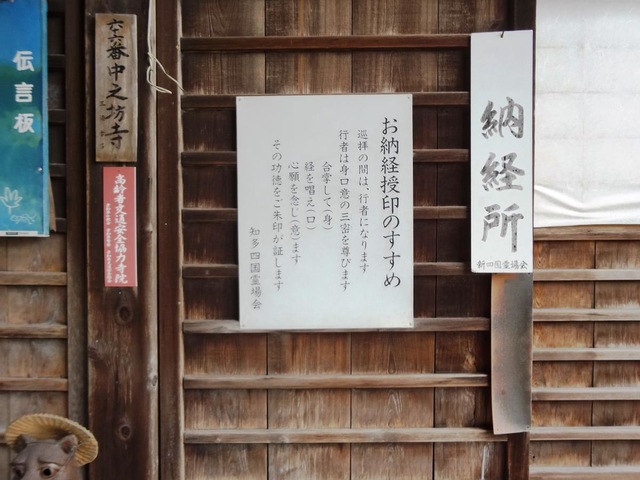 納経所
新四国霊場会
お納経授印のすすめ
巡拝の間は、行者になります
行者は身口意の三密を尊びます
合掌して(身)
経を唱え(口)
心願を念じ(意)ます
その功徳をご朱印が証します
知多四国霊場会
六十六番中之坊寺
高齢者交通安全協力寺院
伝言板